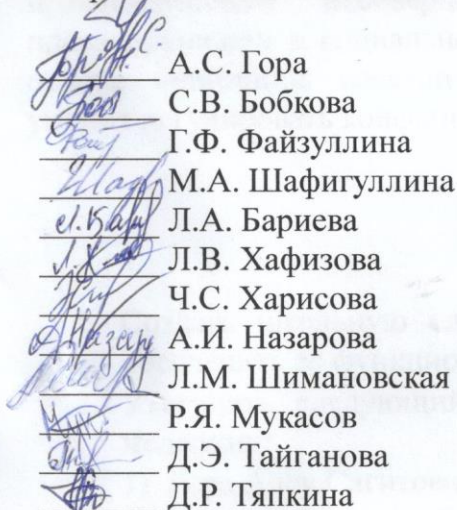 А.С. Гора
С.В. Бобкова
Г.Ф. Файзуллина
М.А. Шафигуллина
Л.А. Бариева
Л.В. Хафизова
Ч.С. Харисова
А.И. Назарова
Л.М. Шимановская
Р.Я. Мукасов
Д.Э. Тайганова
Д.Р. Тяпкина